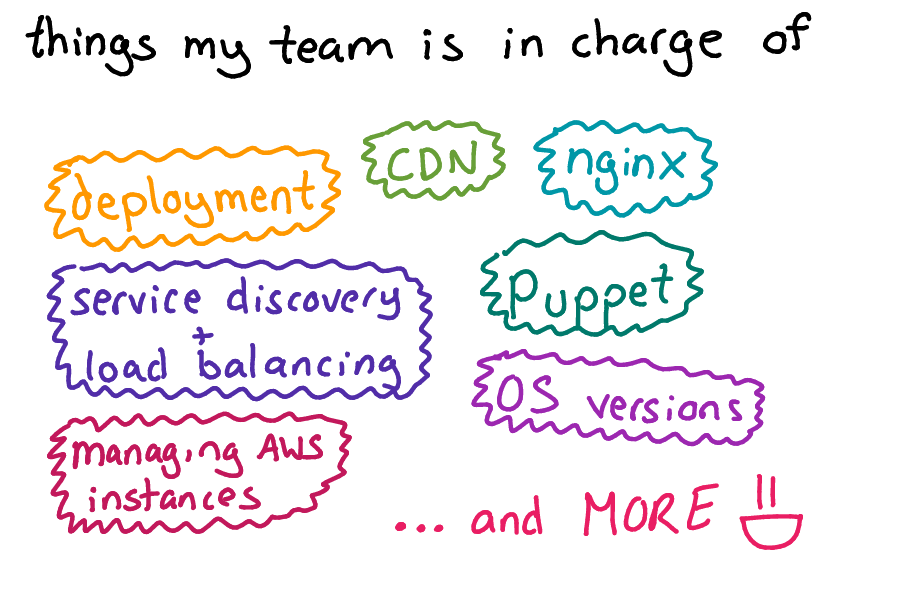 things my team is in charge of
deployment
CDN
nginx
service discovery
+
load balancing
puppet
OS versions
managing AWS
instances
... and MORE